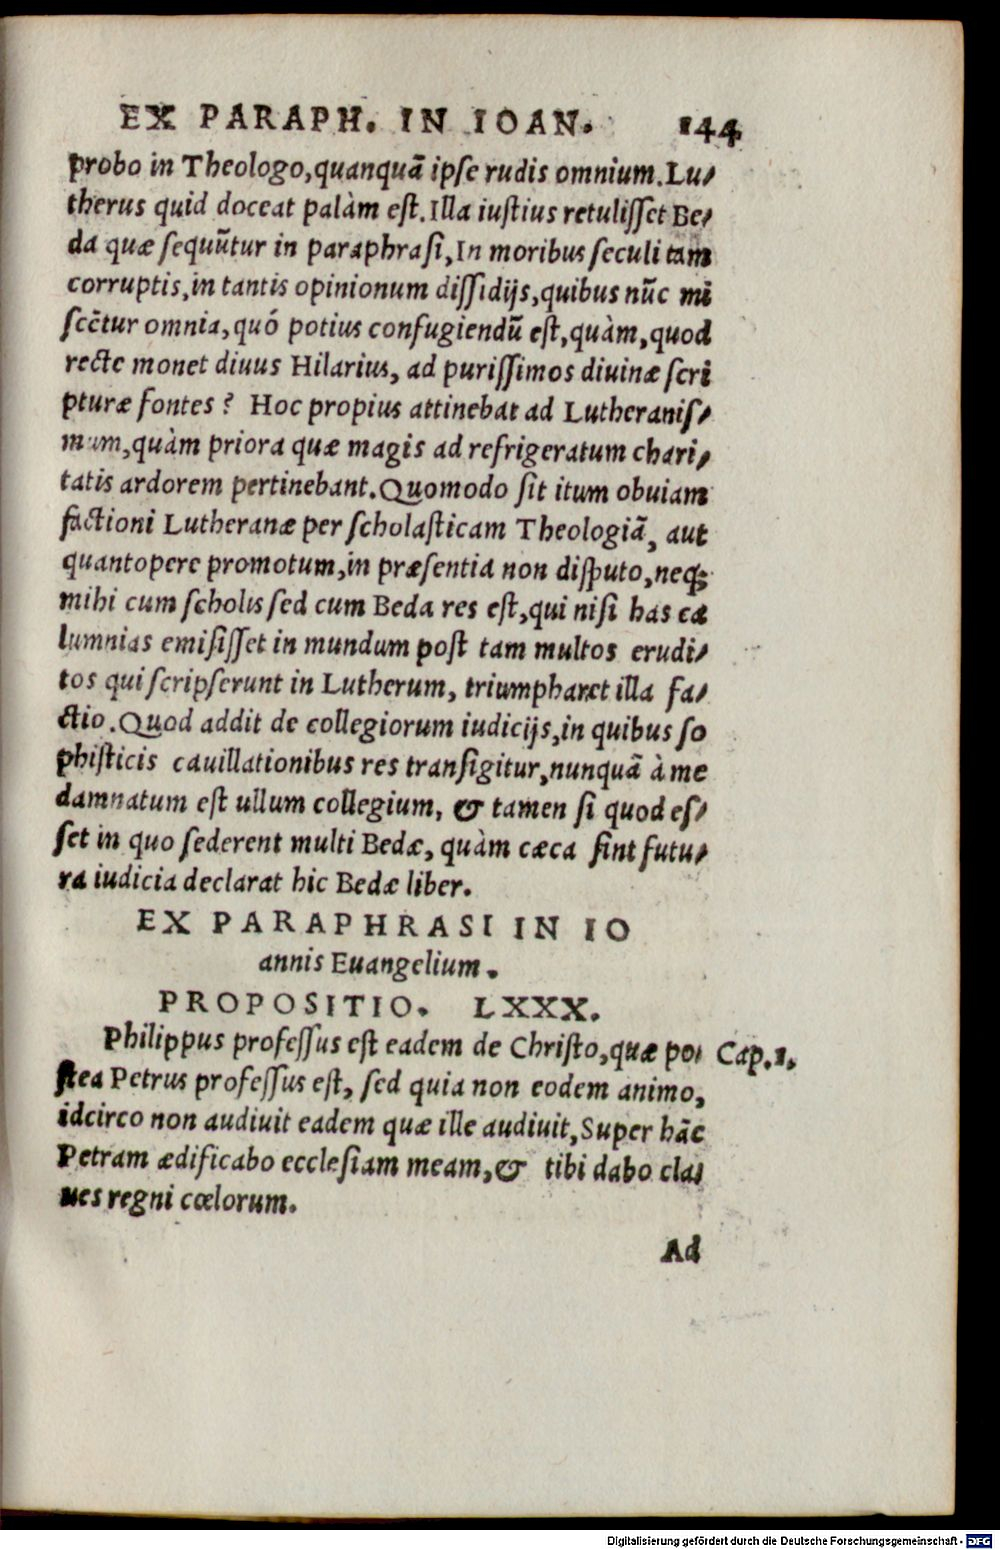 EX PARAPH. IN IOAN. 144
probo in Theologo, quanquā ipse rudis omnium. Lu-
therus quid doceat palàm est. Illa iustius retulisset Be-
da quæ sequūtur in paraphrasi, In moribus seculi tam
corruptis, in tantis opinionum dissidijs, quibus nūc mi
scētur omnia, quó potius confugiendū est, quàm, quod
recte monet diuus Hilarius, ad purissimos diuinæ scri
pturæ fontes? Hoc propius attinebat ad Lutheranis-
mum, quàm priora quæ magis ad refrigeratum chari-
tatis ardorem pertinebant. Quomodo sit itum obuiam
factioni Lutheranæ per scholasticam Theologiā, aut
quantopere promotum, in præsentia non disputo, neqꝫ
mihi cum scholis sed cum Beda res est, qui nisi has ca
lumnias emisisset in mundum post tam multos erudi-
tos qui scripserunt in Lutherum, triumpharet illa fa-
ctio. Quod addit de collegiorum iudicijs, in quibus so
phisticis cauillationibus res transigitur, nunquā à me
damnatum est ullum collegium, & tamen si quod es-
set in quo sederent multi Bedæ, quàm cæca sint futu-
ra iudicia declarat hic Bedæ liber.
EX PARAPHRASI IN IO
annis Euangelium.
PROPOSITIO. LXXX.
Philippus professus est eadem de Christo, quæ po- Cap.1.
stea Petrus professus est, sed quia non eodem animo,
idcirco non audiuit eadem quæ ille audiuit, Super hāc
Petram ædificabo ecclesiam meam, & tibi dabo cla-
ues regni cœlorum.
Ad
Digitalisierung gefördert durch die Deutsche Forschungsgemeinschaft - DFG